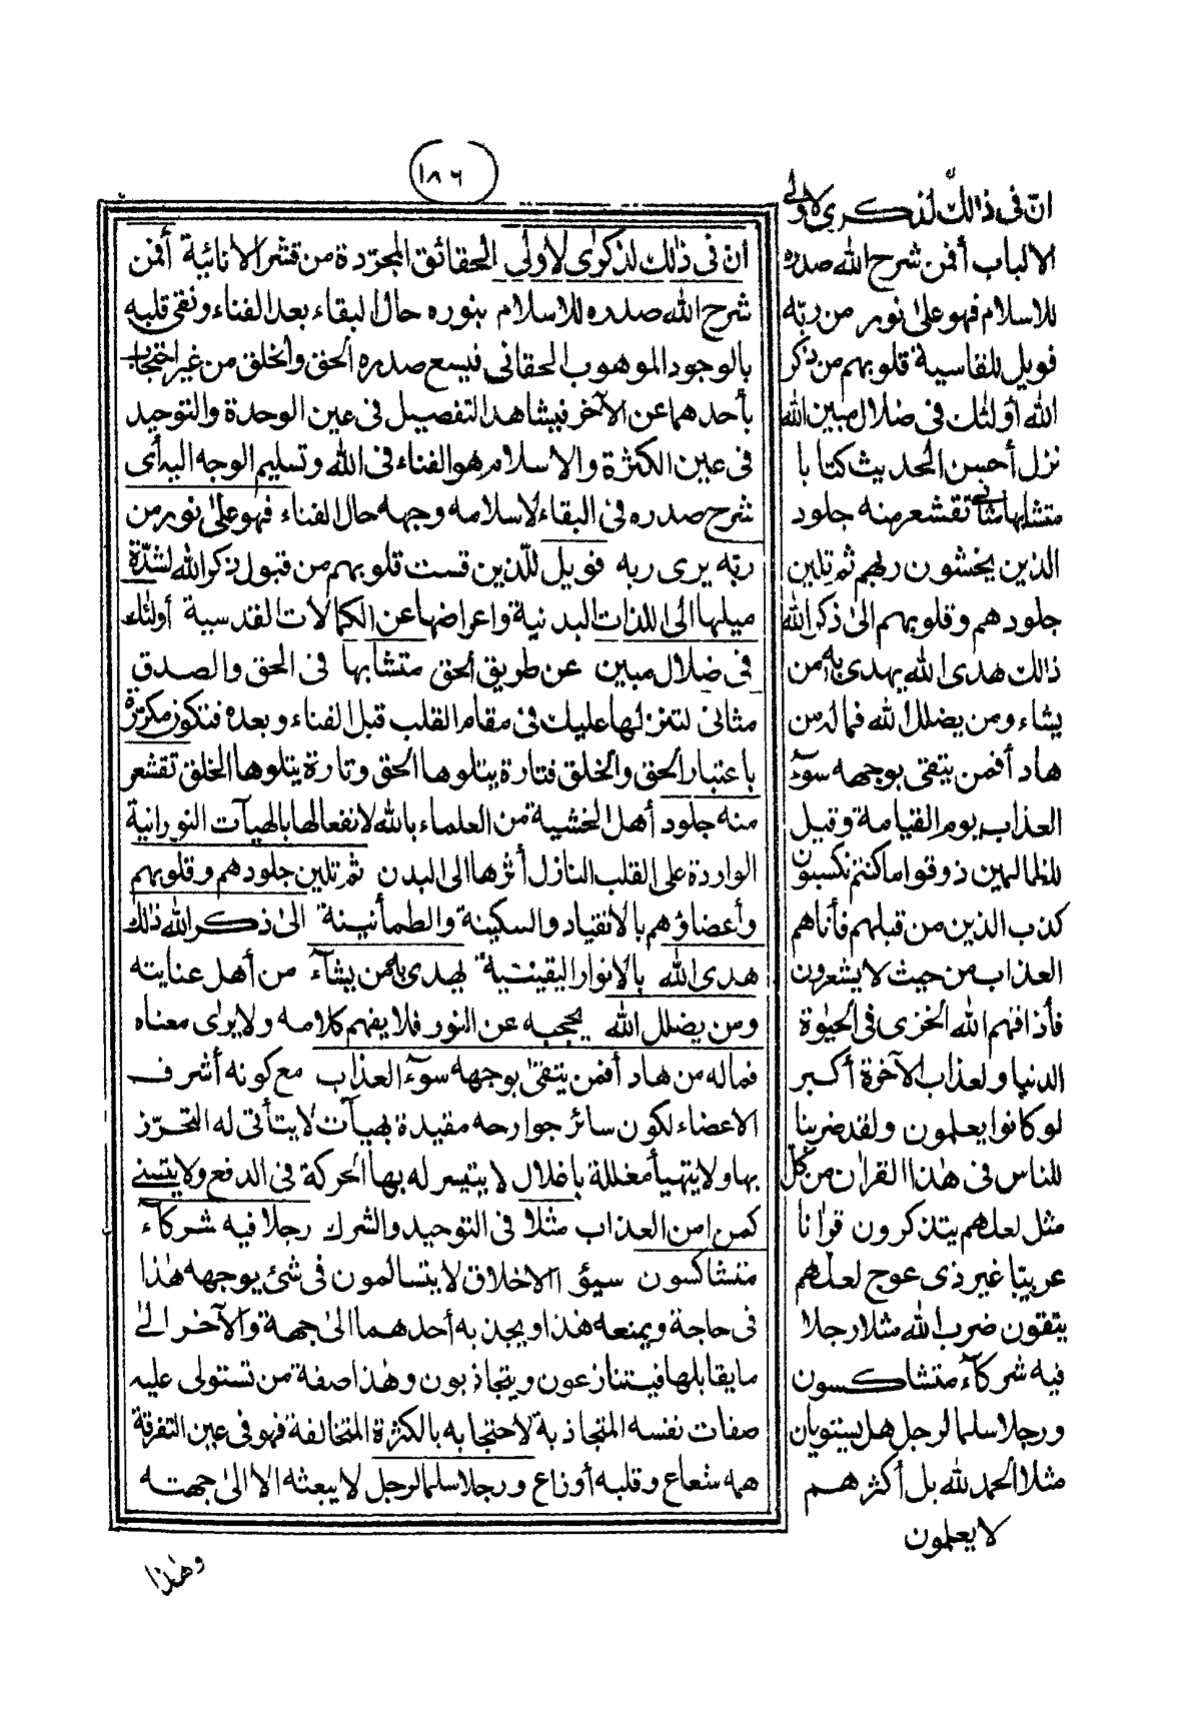 ١٨٦
انّ فى ذالك لذكرى لاولى
الالباب أفمن شرح الله صدره
للاسلام فهو على نور من ربّه
فويل للقاسية قلوبهم من ذكر
الله أولئك فى ضلال مبين الله
نزل أحسن الحديث كتابا
متشابها مثانى تقشعر منه جلود
الذين يخشون ربهم ثم تلين
جلودهم وقلوبهم الى ذكر الله
ذالك هدى الله يهدى به من
يشاء ومن يضلل الله فما له من
هاد أفمن يتقى بوجهه سوء
العذاب يوم القيامة وقيل
للظالمين ذوقوا ما كنتم تكسبون
كذب الذين من قبلهم فأتاهم
العذاب من حيث لا يشعرون
فأذاقهم الله الخزى فى الحيوة
الدنيا ولعذاب الآخرة أكبر
لو كانوا يعلمون ولقد ضربنا
للناس فى هذا القرآن من كل
مثل لعلهم يتذكرون قرآنا
عربيّا غير ذى عوج لعلهم
يتقون ضرب الله مثلا رجلا
فيه شركآء متشاكسون
ورجلا سلما لرجل هل يستويان
مثلا الحمد لله بل أكثرهم
لا يعلمون
ان فى ذالك لذكرى لأولى الحقائق المجرّدة من قشر الأنائية أفمن
شرح الله صدره للاسلام بنوره حال البقاء بعد الفناء ونقى قلبه
بالوجود الموهوب الحقانى فيسع صدره الحق والخلق من غير احتجاب
بأحدهما عن الآخر فيشاهد التفصيل فى عين الوحدة والتوحيد
فى عين الكثرة والاسلام هو الفناء فى الله وتسليم الوجه اليه أى
شرح صدره فى البقاء لاسلامه وجهه حال الفناء فهو على نور من
ربّه يرى ربه فويل للّذين قست قلوبهم من قبول ذكر الله لشدّة
ميلها الى اللذات البدنية واعراضها عن الكمالات القدسية أولئك
فى ضلال مبين عن طريق الحق متشابها فى الحق والصدق
مثانى لتنزلها عليك فى مقام القلب قبل الفناء وبعده فتكون مكررة
باعتبار الحق والخلق فتارة يتلوها الحق وتارة يتلوها الخلق تقشعر
منه جلود أهل الخشية من العلماء بالله لانفعالها بالهيآت النورانية
الواردة على القلب النازل أثرها الى البدن ثم تلين جلودهم وقلوبهم
وأعضاؤهم بالانقياد والسكينة والطمأنينة الى ذكر الله ذلك
هدى الله بالانوار اليقينية يهدى به من يشآء من أهل عنايته
ومن يضلل الله يحجبه عن النور فلا يفهم كلامه ولا يرى معناه
فما له من هاد أفمن يتقى بوجهه سوء العذاب مع كونه أشرف
الاعضاء لكون سائر جوارحه مقيدة بهيآت لا يتأتى له التحرّز
بها ولا يتهيأ مغللة بأغلال لا يتيسر له بها الحركة فى الدفع ولا يتسنى
كمن امن العذاب مثلا فى التوحيد والشرك رجلا فيه شركآء
متشاكسون سيئ الاخلاق لا يتسالمون فى شئ يوجهه هذا
فى حاجة ويمنعه هذا ويجذبه أحدهما الى جهة والآخر الى
ما يقابلها فيتنازعون ويتجاذبون وهذا صفة من تستولى عليه
صفات نفسه المتجاذبة لاحتجابه بالكثرة المتخالفة فهو فى عين التفرقة
همه شعاع وقلبه أوزاع ورجلا سلما لرجل لا يبعثه الا الى جهته
وهذا